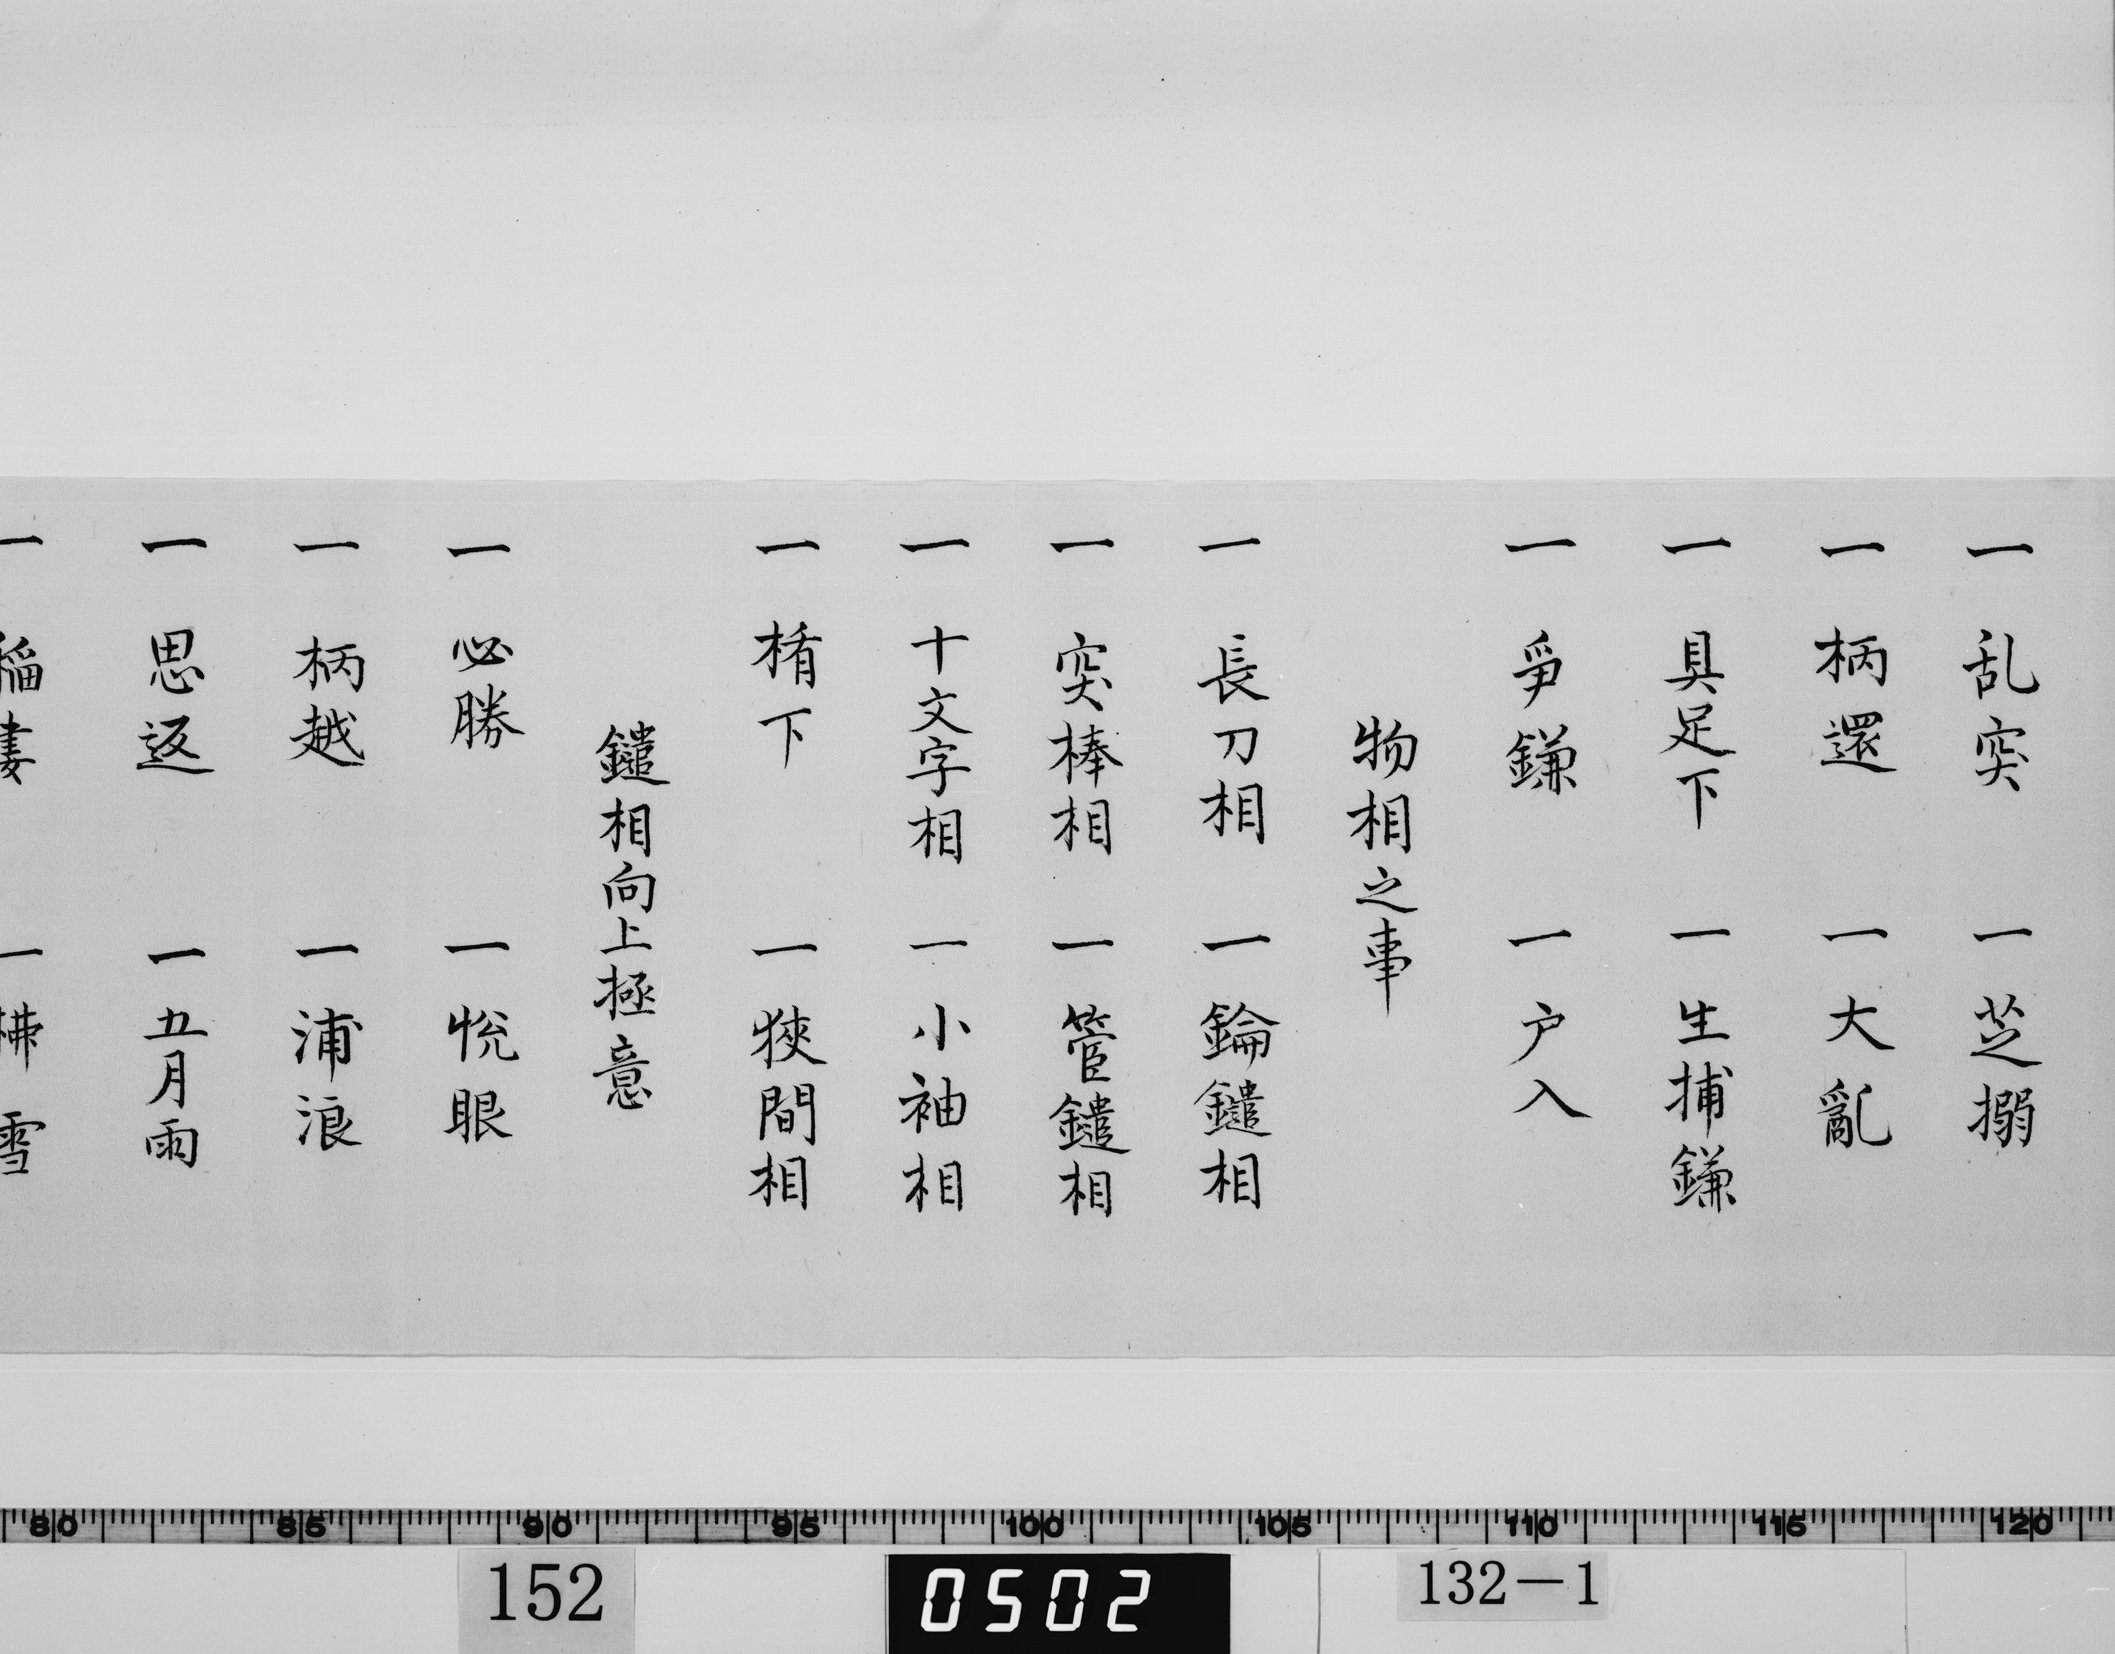 一 乱突 一 芝搦
一 柄還 一 大亂
一 具足下 一 生捕鎌
一 爭鎌 一 戸入
物相之事
一 長刀相 一 錀鑓相
一 突棒相 一 管鑓相
一 十文字相 一 小袖相
一 楕下 一 狹間相
鑓相向上極意
一 必勝 一 悅眼
一 柄越 一 浦浪
一 思返 一 五月雨
一 稲妻 一 柫雪
80 85 90 95 100 105 110 115 120
152
0502
132-1